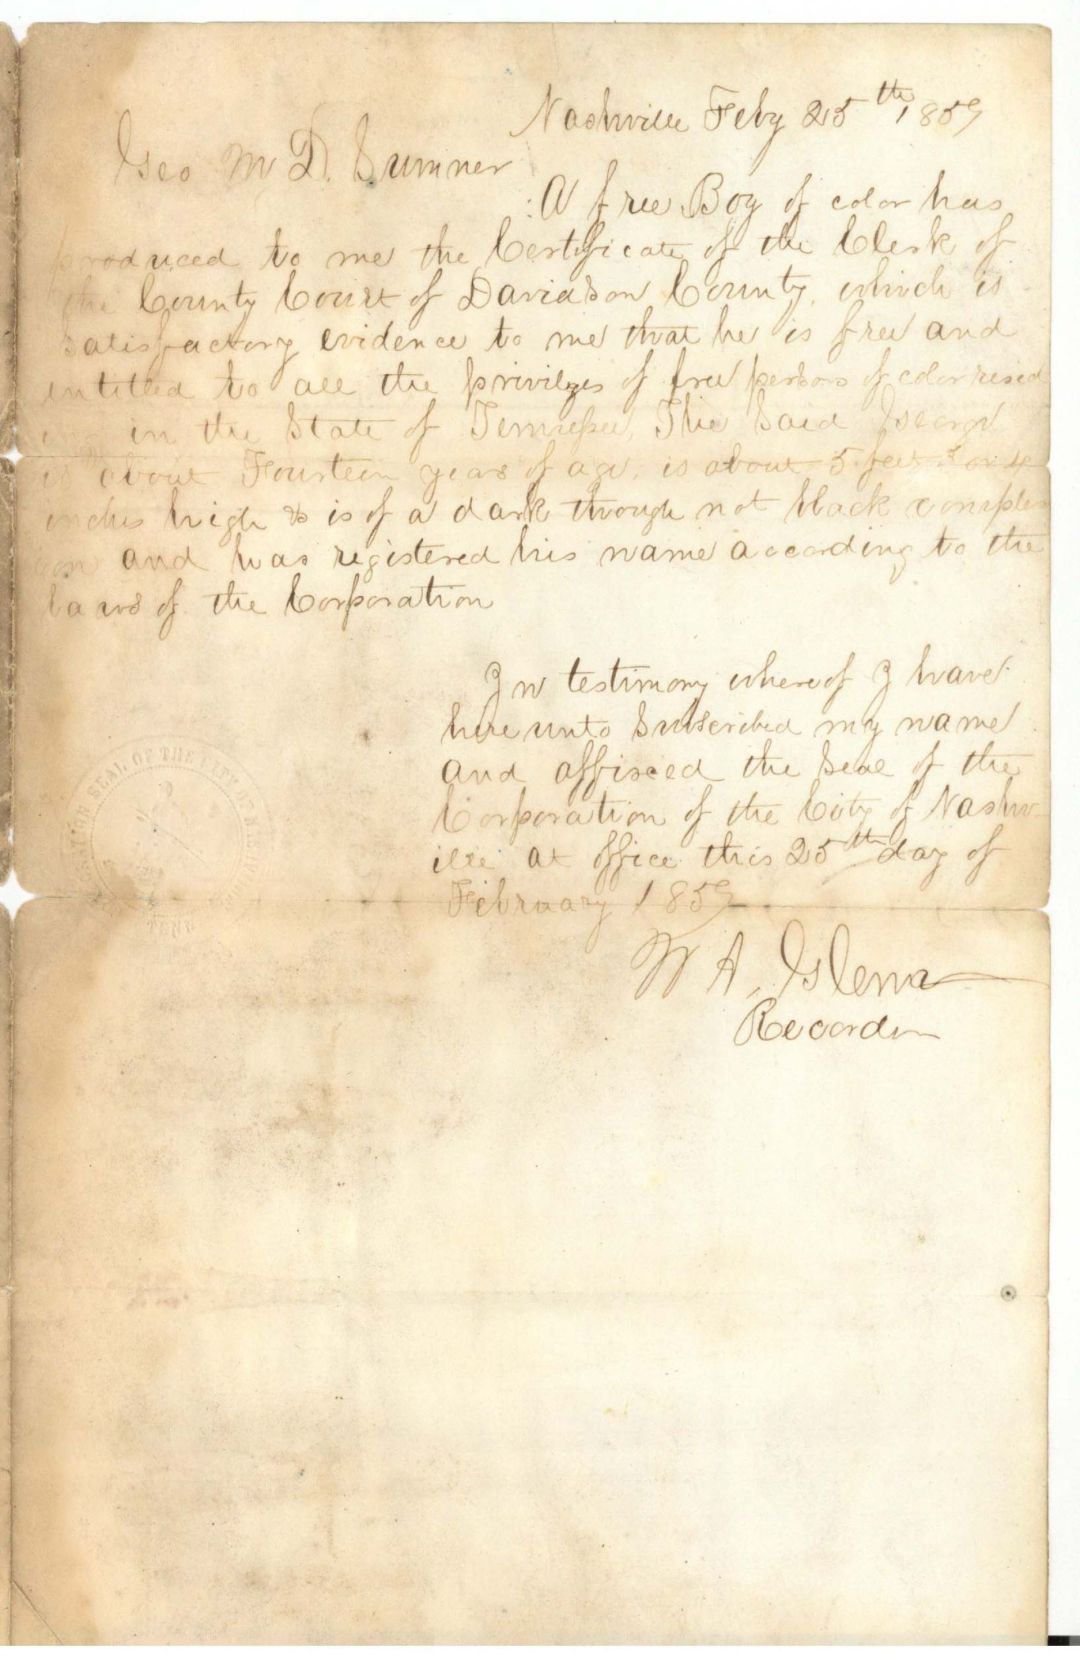 Nashville Feby 25th 1859
Geo M D. Sumner
A free Boy of color has
produced to me the Certificate of the Clerk of
the County Court of Davidson County, which is
satisfactory evidence to me that he is free and
intitled to all the privilges of free persons of color resed
ing in the State of Tennessee, The Said George
is about Fourteen years of age, is about 5 feet 3 or 4
inches high & is of a dark though not black complex
on and has registered his name according to the
Laws of the Corporation
In testimony whereof I have
here unto Subscribed my name
and affixced the Seal of the
Corporation of the City of Nashv-
ille at office this 25th day of
February 1859
W A. Glenn
Recorder
SEAL OF THE CITY
TENN